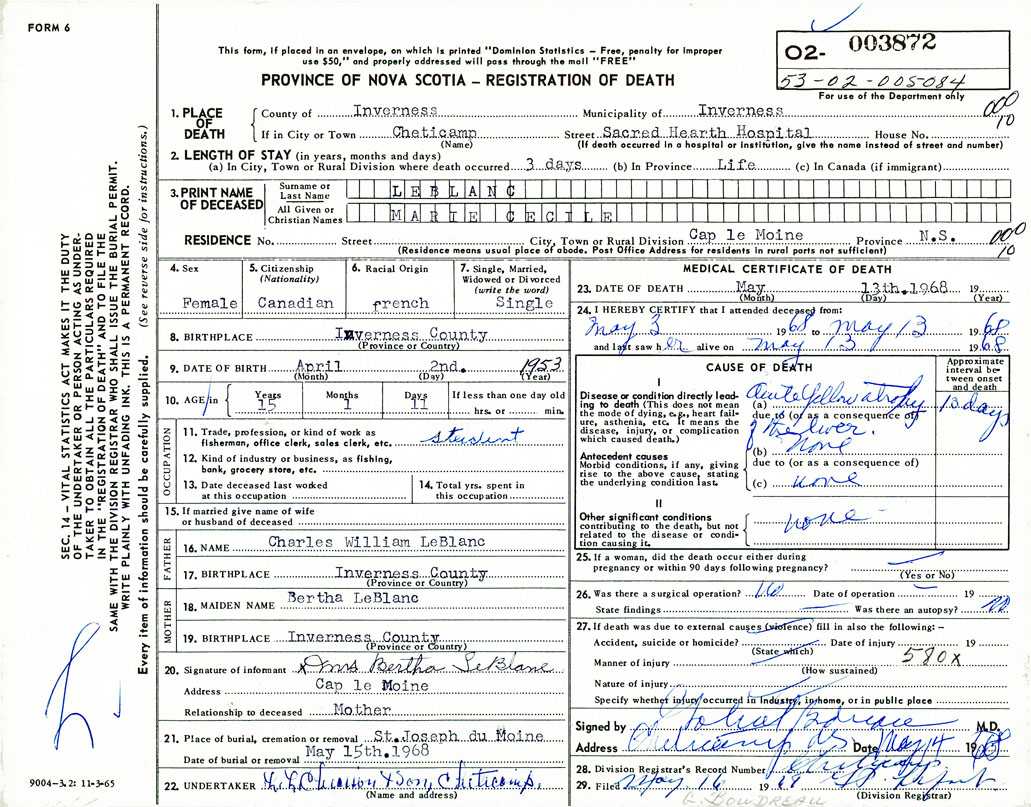 FORM 6
This form, if placed in an envelope, on which is printed "Dominion Statistics – Free, penalty for improper
use $50," and properly addressed will pass through the mail "FREE"
PROVINCE OF NOVA SCOTIA – REGISTRATION OF DEATH
02- 003872
53-02-005084
For use of the Department only
1. PLACE OF DEATH County of Inverness Municipality of Inverness 000
If in City or Town Cheticamp Street Sacred Hearth Hospital House No. 10
(Name) (If death occurred in a hospital or institution, give the name instead of street and number)
2. LENGTH OF STAY (in years, months and days)
(a) In City, Town or Rural Division where death occurred 3 days (b) In Province Life (c) In Canada (if immigrant)
3. PRINT NAME OF DECEASED Surname or Last Name LEBLANC
All Given or Christian Names MARIE CECILE
RESIDENCE No. Street City, Town or Rural Division Cap le Moine Province N.S. 000
(Residence means usual place of abode. Post Office Address for residents in rural parts not sufficient) 10
4. Sex
Female
5. Citizenship
(Nationality)
Canadian
6. Racial Origin
french
7. Single, Married,
Widowed or Divorced
(write the word)
Single
8. BIRTHPLACE Inverness County
(Province or Country)
9. DATE OF BIRTH April 2nd. 1953
(Month) (Day) (Year)
10. AGE in Years Months Days If less than one day old
15 1 11 hrs. or min.
OCCUPATION
11. Trade, profession, or kind of work as
fisherman, office clerk, sales clerk, etc. student
12. Kind of industry or business, as fishing,
bank, grocery store, etc.
13. Date deceased last worked
at this occupation
14. Total yrs. spent in
this occupation
15. If married give name of wife
or husband of deceased
FATHER
16. NAME Charles William LeBlanc
17. BIRTHPLACE Inverness County
(Province or Country)
MOTHER
18. MAIDEN NAME Bertha LeBlanc
19. BIRTHPLACE Inverness County
(Province or Country)
20. Signature of informant x Mrs Bertha LeBlanc
Address Cap le Moine
Relationship to deceased Mother
21. Place of burial, cremation or removal St. Joseph du Moine
Date of burial or removal May 15th.1968
22. UNDERTAKER & Son, Cheticamp.
(Name and address)
MEDICAL CERTIFICATE OF DEATH
23. DATE OF DEATH May 13th.1968 19
(Month) (Day) (Year)
24. I HEREBY CERTIFY that I attended deceased from:
May 3 1968 to May 13 1968
and last saw her alive on May 13 1968
CAUSE OF DEATH
Approximate interval between onset and death
I
Disease or condition directly leading to death (This does not mean the mode of dying, e.g., heart failure, asthenia, etc. It means the disease, injury, or complication which caused death.)
(a) Acute yellow atrophy 13 days
due to (or as a consequence of)
of the liver.
Antecedent causes
Morbid conditions, if any, giving rise to the above cause, stating the underlying condition last.
(b) none
due to (or as a consequence of)
(c) none
II
Other significant conditions
contributing to the death, but not related to the disease or condition causing it.
none
25. If a woman, did the death occur either during
pregnancy or within 90 days following pregnancy?
(Yes or No)
26. Was there a surgical operation? no Date of operation 19
State findings Was there an autopsy? no
27. If death was due to external causes (violence) fill in also the following: –
Accident, suicide or homicide? Date of injury 19
(State which) 580X
Manner of injury
(How sustained)
Nature of injury
Specify whether injury occurred in industry, in home, or in public place
Signed by M.D.
Address Cheticamp NS Date May 14 1968
28. Division Registrar's Record Number Cheticamp
29. Filed May 16 1968
(Division Registrar)
G. BOUDREAU
SEC. 14 – VITAL STATISTICS ACT MAKES IT THE DUTY
OF THE UNDERTAKER OR PERSON ACTING AS UNDER-
TAKER TO OBTAIN ALL THE PARTICULARS REQUIRED
IN THE "REGISTRATION OF DEATH" AND TO FILE THE
SAME WITH THE DIVISION REGISTRAR WHO SHALL ISSUE THE BURIAL PERMIT.
WRITE PLAINLY WITH UNFADING INK. THIS IS A PERMANENT RECORD.
Every item of information should be carefully supplied. (See reverse side for instructions.)
9004-3.2: 11-3-65